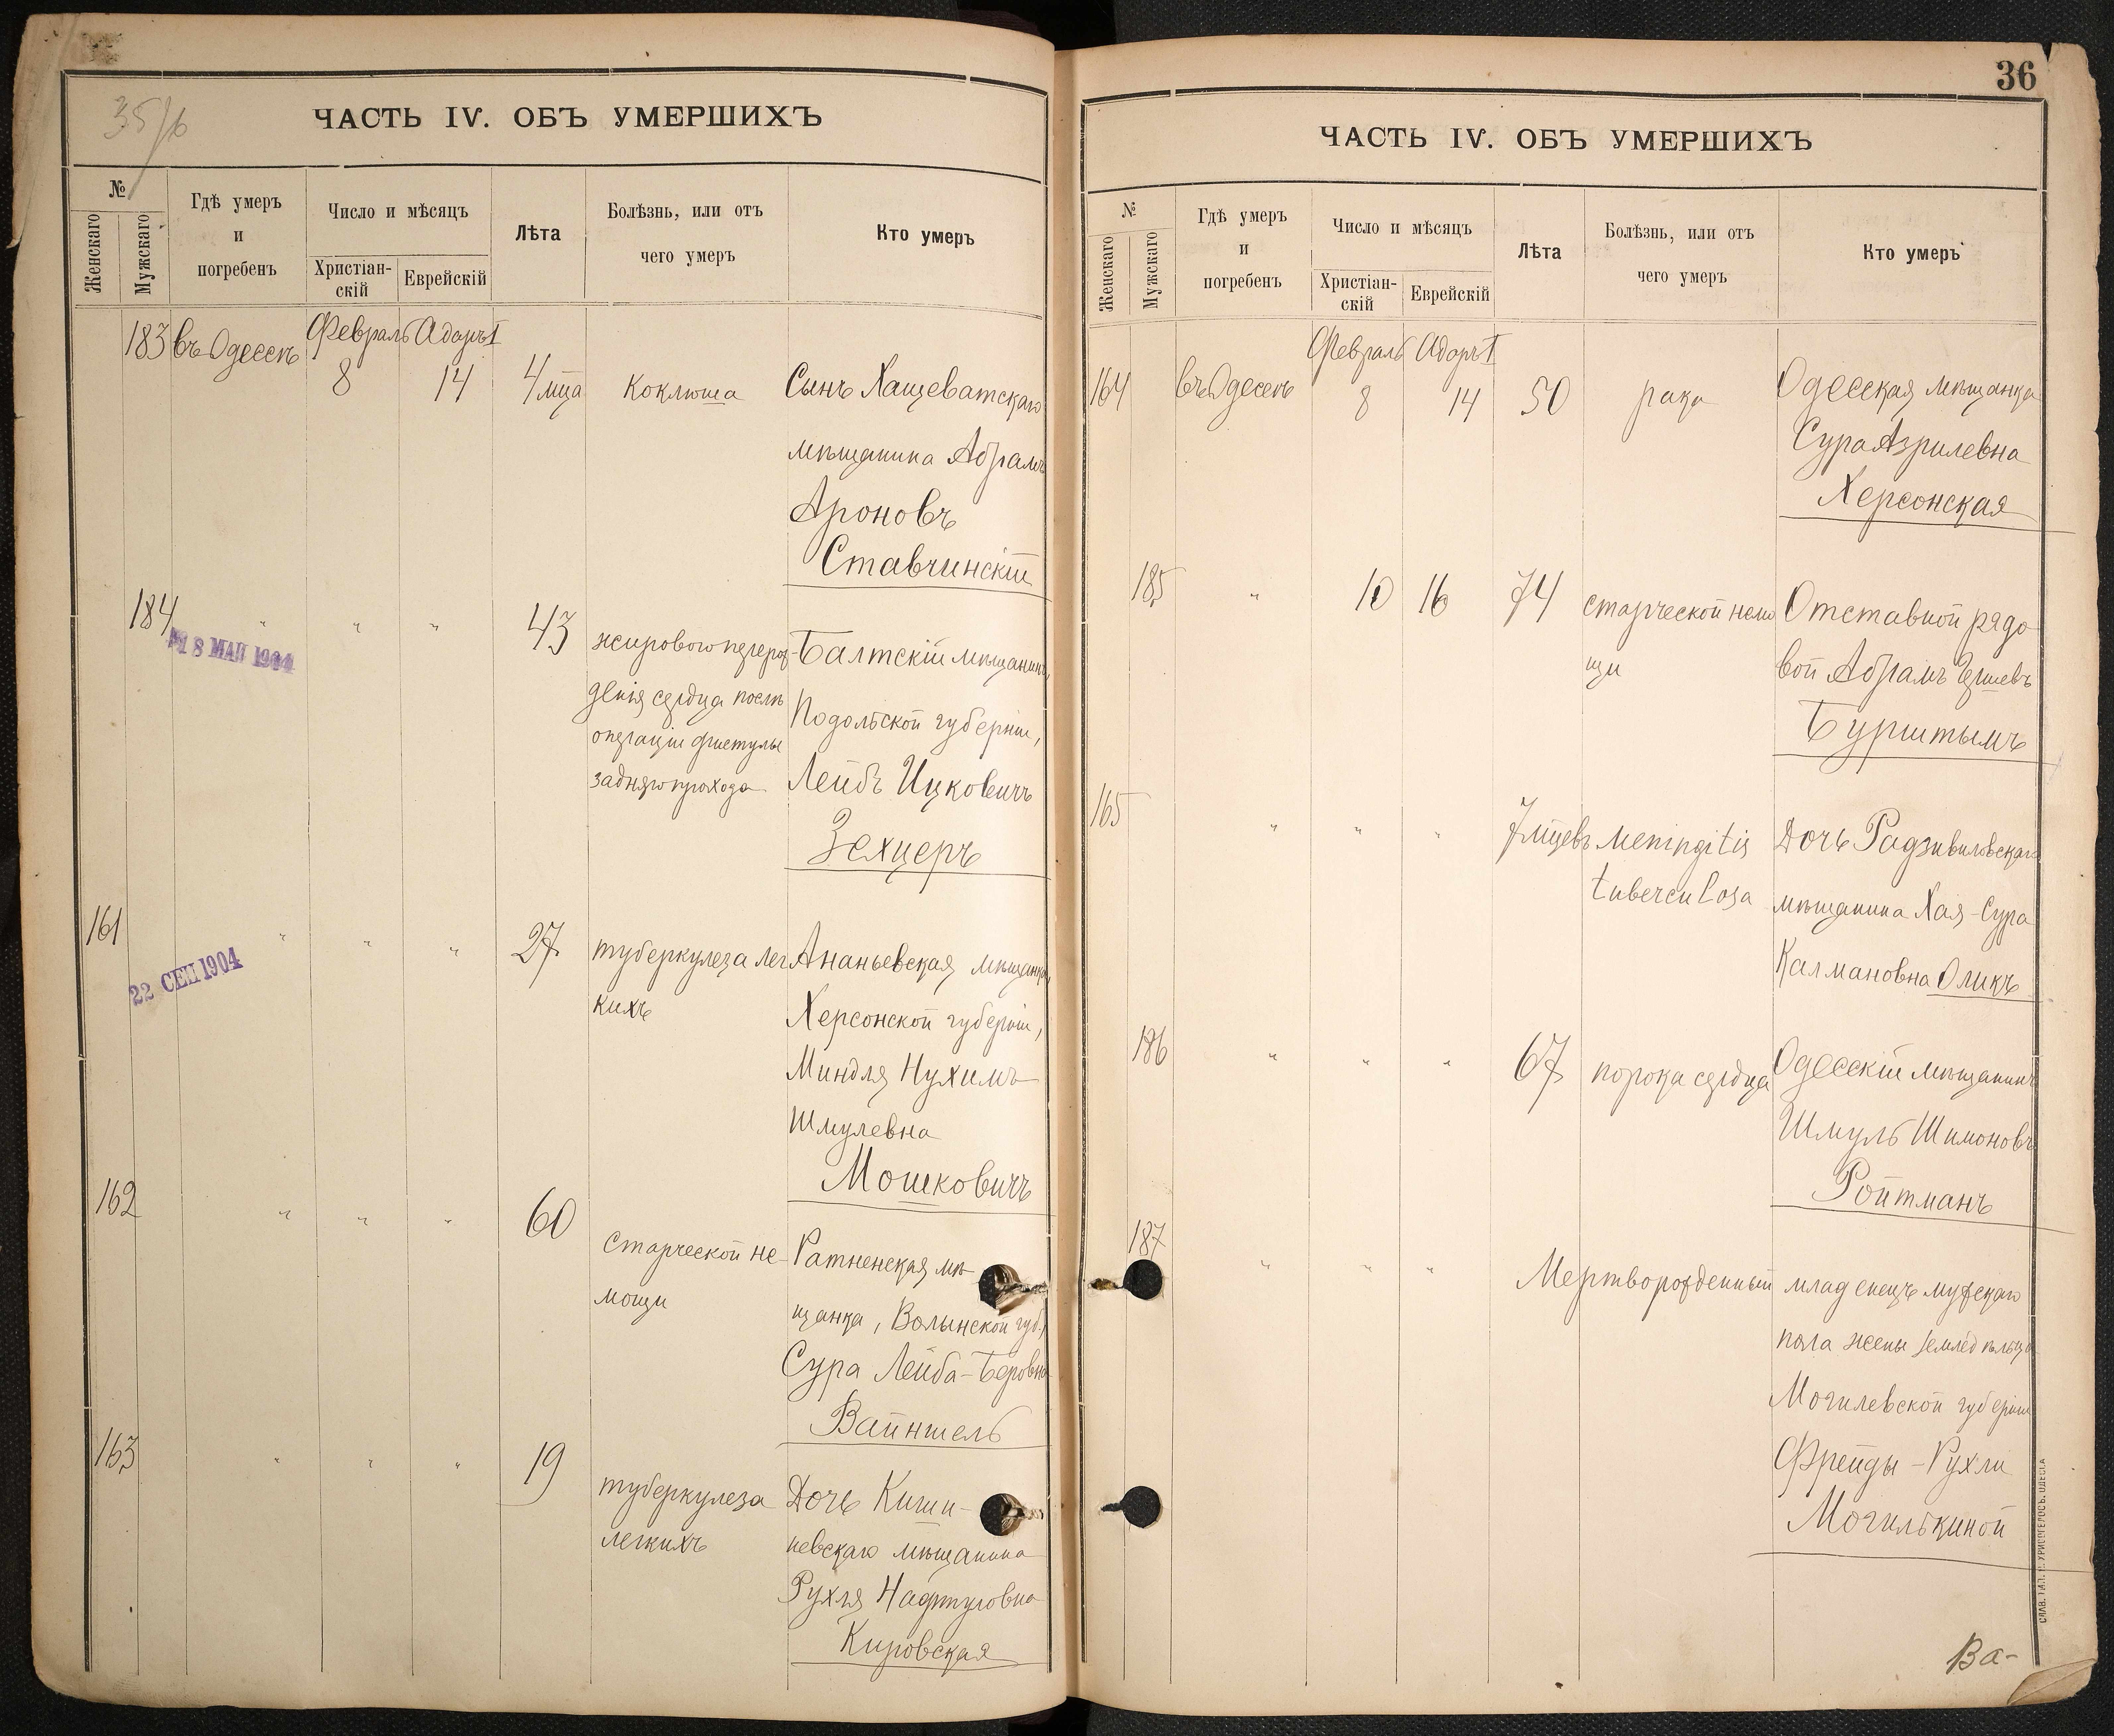 35/б
ЧАСТЬ IV. ОБЪ УМЕРШИХЪ
№
Женскаго
Мужскаго
Гдѣ умеръ
и
погребенъ
Число и мѣсяцъ
Христіан-
скій
Еврейскій
Лѣта
Болѣзнь, или отъ
чего умеръ
Кто умеръ
183 въ Одессѣ Февраль Адаръ I
8 14 4 мца Коклюша Сынъ Хащеватскаго
мѣщанина Абрамъ
Ароновъ
Ставчинскій
184 " " " 43 жирового перерож-
дenія сердца послѣ
операціи фистулы
задняго прохода
18 МАЙ 1904
Балтскій мѣщанинъ,
Подольской губерніи,
Лейбъ Ицковичъ
Зехцеръ
161 " " " 27 туберкулеза лег
кихъ
22 СЕН 1904
Ананьевская мѣщанка,
Херсонской губерніи,
Миндля Нухимъ-
Шмулевна
Мошковичъ
162 " " " 60 старческой не-
мощи
Ратненская мѣ-
щанка, Волынской губ.,
Сура Лейба-Беровна
Вайншель
163 " " " 19 туберкулеза
легкихъ
Дочь Киши-
невскаго мѣщанина
Рухля Нафтуловна
Кировская
36
ЧАСТЬ IV. ОБЪ УМЕРШИХЪ
№
Женскаго
Мужскаго
Гдѣ умеръ
и
погребенъ
Число и мѣсяцъ
Христіан-
скій
Еврейскій
Лѣта
Болѣзнь, или отъ
чего умеръ
Кто умеръ
Февраль Адаръ I
164 въ Одессѣ 8 14 50 рака Одесская мѣщанка
Сура Азрилевна
Херсонская
185 " 10 16 74 старческой немо
щи
Отставной рядо
вой Абрамъ
Бурштымъ
165 " " " 7 мцевъ meningitis
tuberculosa
Дочь Радзивиловскаго
мѣщанина Хая-Сура
Калмановна Оликъ
186 " " " 67 порока сердца Одесскій мѣщанинъ
Шмуль Шимоновъ
Ройтманъ
187 " " " Мертворожденный младенецъ мужскаго
пола жены земледѣльца
Могилевской губерніи
Фрейды-Рухли
Могилькиной
Ва-
СЛАВ. ТИП. Н. ХРИСОГЕЛОСЪ. ОДЕССА